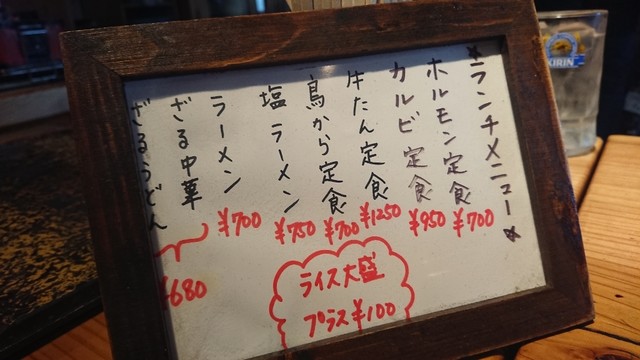 ★ランチメニュー★
ホルモン定食 ¥700
カルビ定食 ¥950
牛たん定食 ¥1250
鳥から定食 ¥700
塩ラーメン ¥750
ラーメン ¥700
ざる中華
ざるうどん
¥680
ライス大盛
プラス¥100
KIRIN